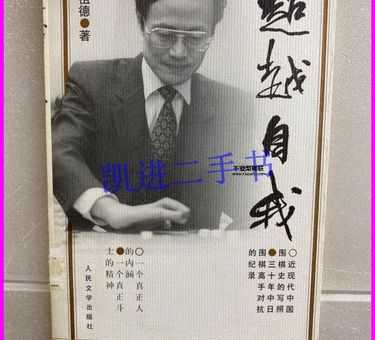 超越自我
祖德●著
凯进二手书
○近现代中国
围棋史的写照
●三十年中日
围棋高手对抗
的纪录
○一个真正人
的内涵
●一个真正斗
士的精神
人民文学出版社